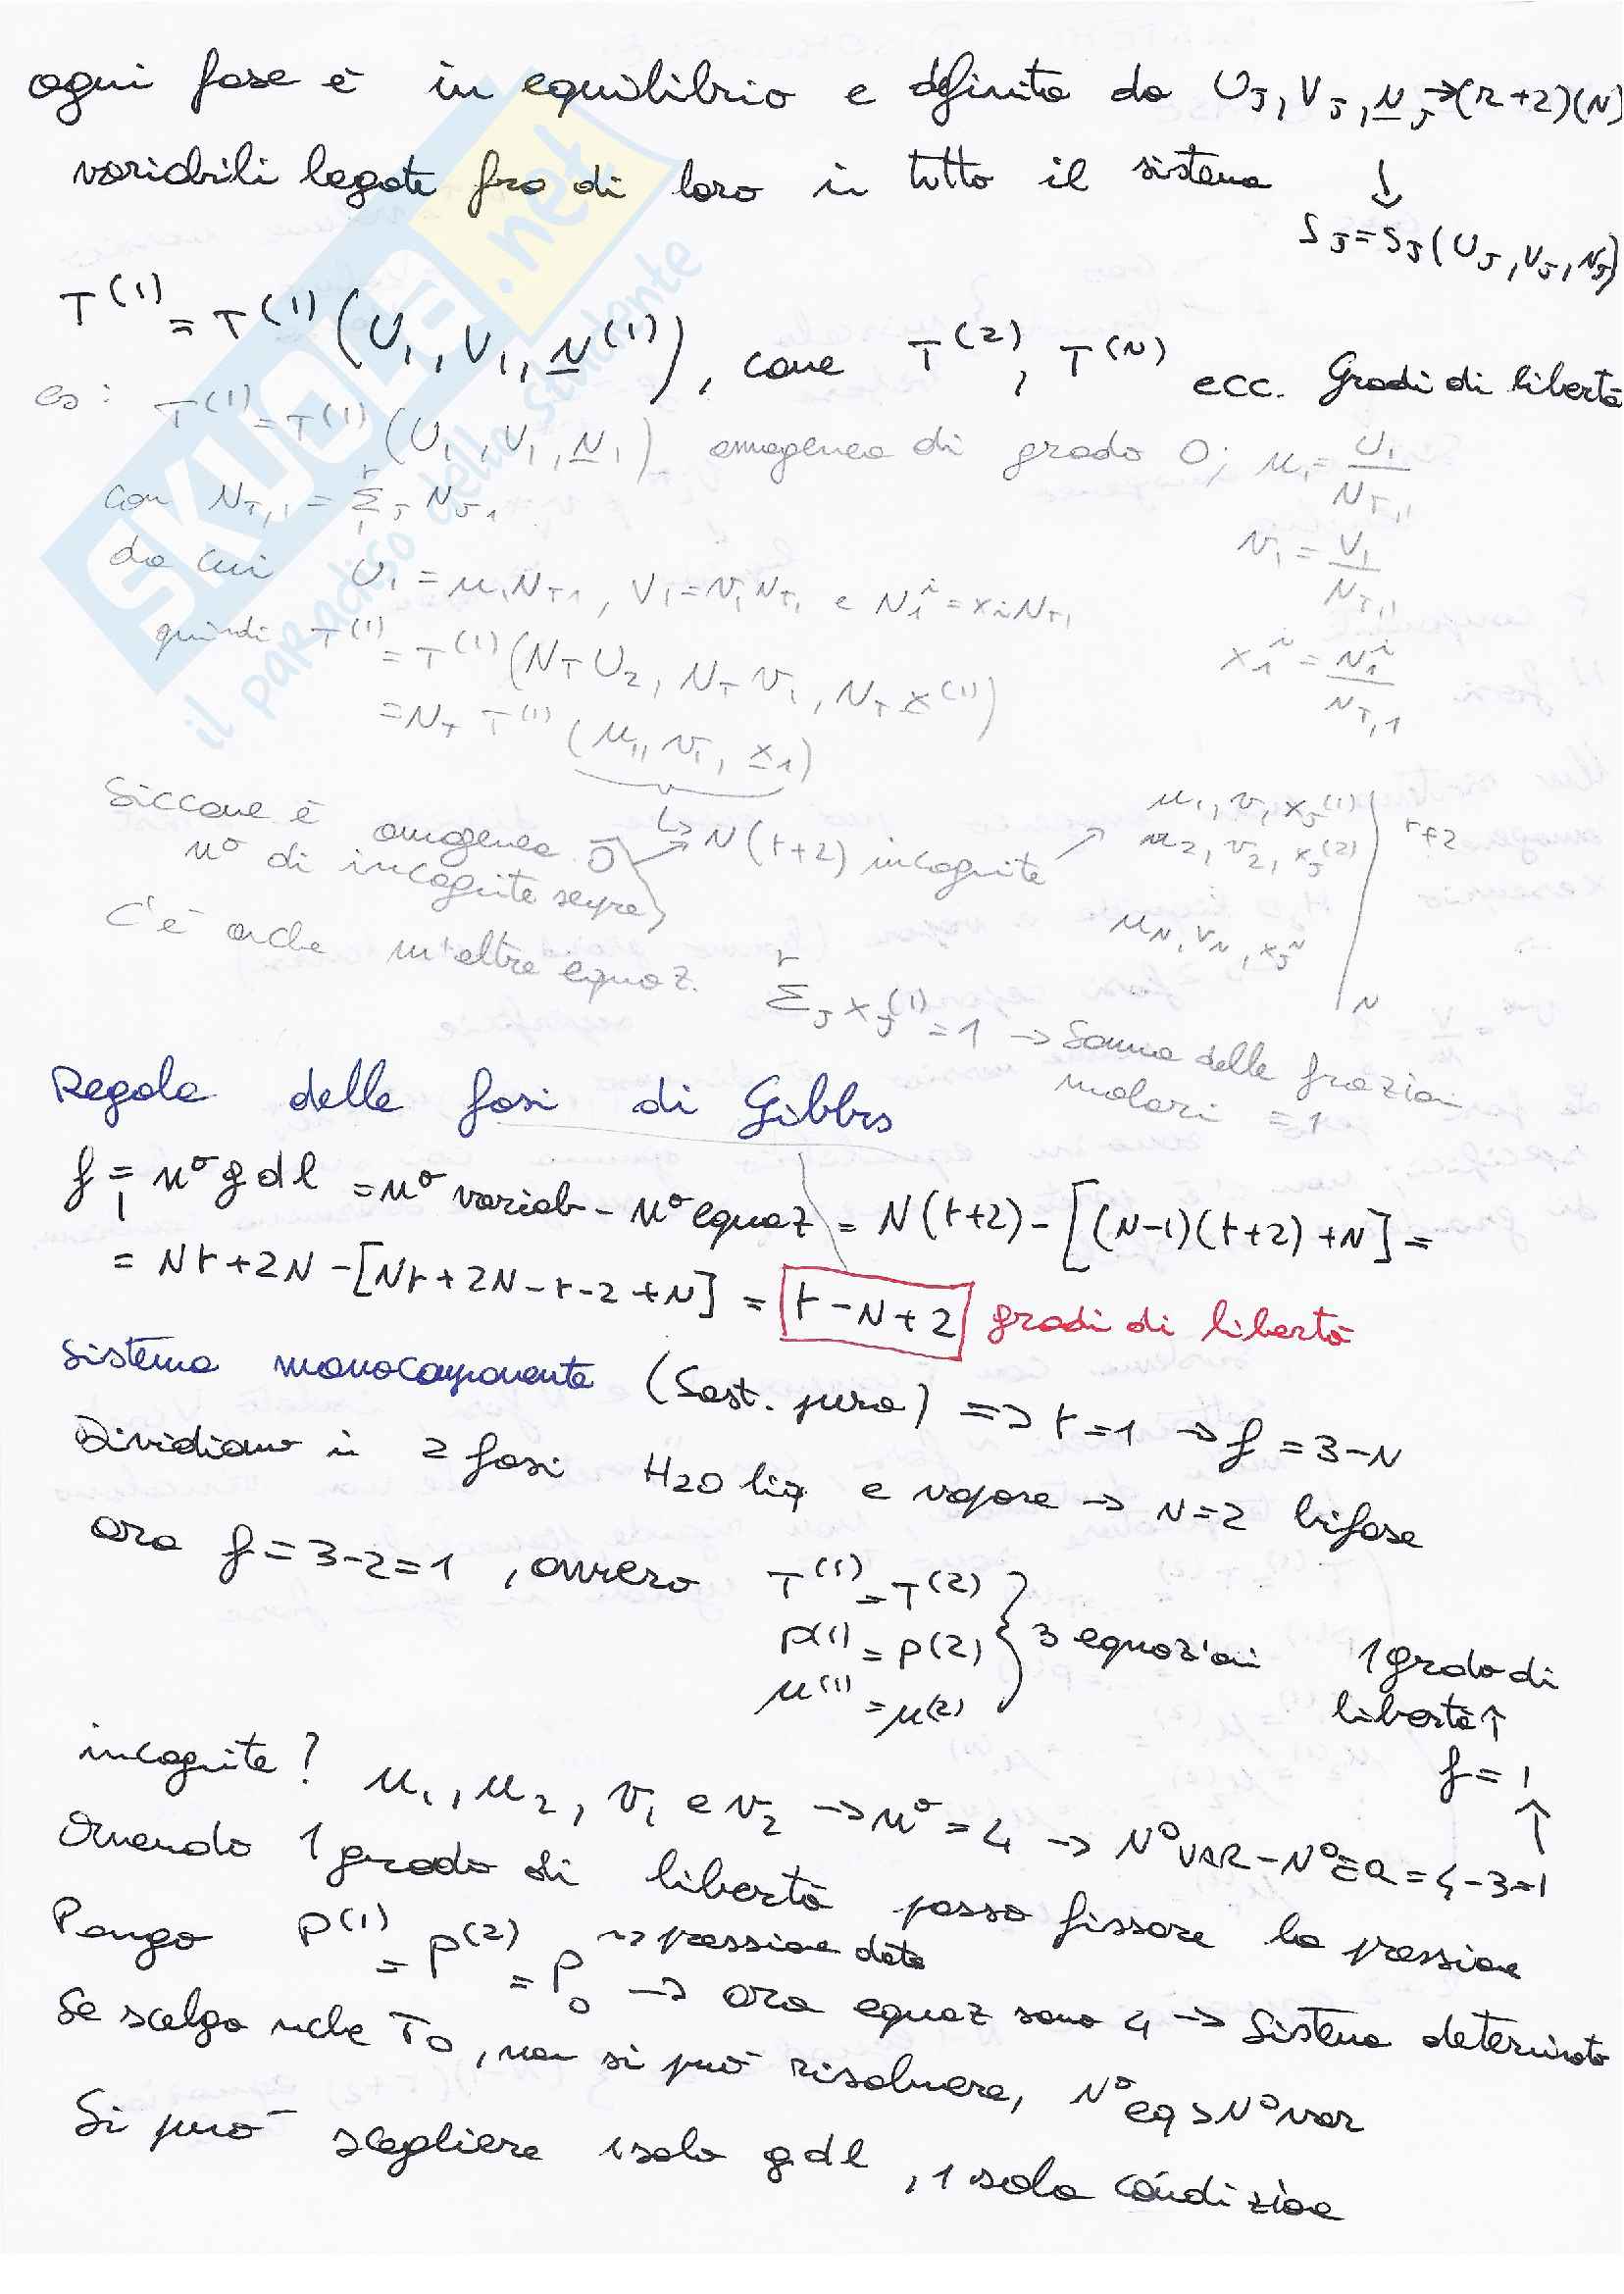 ogni fase è in equilibrio e definita da U_J, V_J, N_J → (r+2)(N)
variabili legate fra di loro in tutto il sistema ↓
S_J = S_J(U_J, V_J, N_J)
T^(1) = T^(1)(U_1, V_1, N^(1)), come T^(2), T^(N) ecc. Gradi di libertà
es: T^(1) = T^(1)(U_1, V_1, N_1) omogenea di grado 0; u_1 = U_1/N_T,1
con N_T,1 = Σ_J^r N_J1
v_1 = V_1/N_T,1
da cui U_1 = u_1 N_T1, V_1 = v_1 N_T1 e N_1^i = x_i N_T1
x_1^i = N_1^i/N_T,1
quindi T^(1) = T^(1)(N_T U_2, N_T v_1, N_T x^(1))
= N_T T^(1)(u_1, v_1, x_1)
Siccome è omogenea 0
n° di incognite sempre
↳ N(r+2) incognite ↗
u_1, v_1, x_J^(1)
u_2, v_2, x_J^(2)
u_N, v_N, x_J^N
r+2
N
C'è anche un'altra equaz. Σ_J^r x_J^(1) = 1 → Somma delle frazioni
molari = 1
Regola delle fasi di Gibbs
f = n° gdl = n° variab - n° equaz = N(r+2) - [(N-1)(r+2) + N] =
= Nr + 2N - [Nr + 2N - r - 2 + N] = r - N + 2 gradi di libertà
Sistema monocomponente (Sost. pura) => r = 1 → f = 3-N
Dividiamo in 2 fasi H2O liq e vapore → N=2 bifase
ora f = 3-2 = 1, ovvero T^(1) = T^(2)
p^(1) = p^(2) } 3 equazioni
μ^(1) = μ^(2)
1 grado di
libertà ↑
f = 1
↑
incognite? u_1, u_2, v_1 e v_2 → n° = 4 → N°VAR - N°EQ = 4-3=1
Avendo 1 grado di libertà posso fissare la pressione
Pongo p^(1) = p^(2) = p_0 → pressione data → ora equaz sono 4 → Sistema determinato
Se scelgo anche T0, non si può risolvere, N°eq > N°var
Si può scegliere 1 solo gdl, 1 sola condizione
SKUOLA.net
il paradiso dello studente